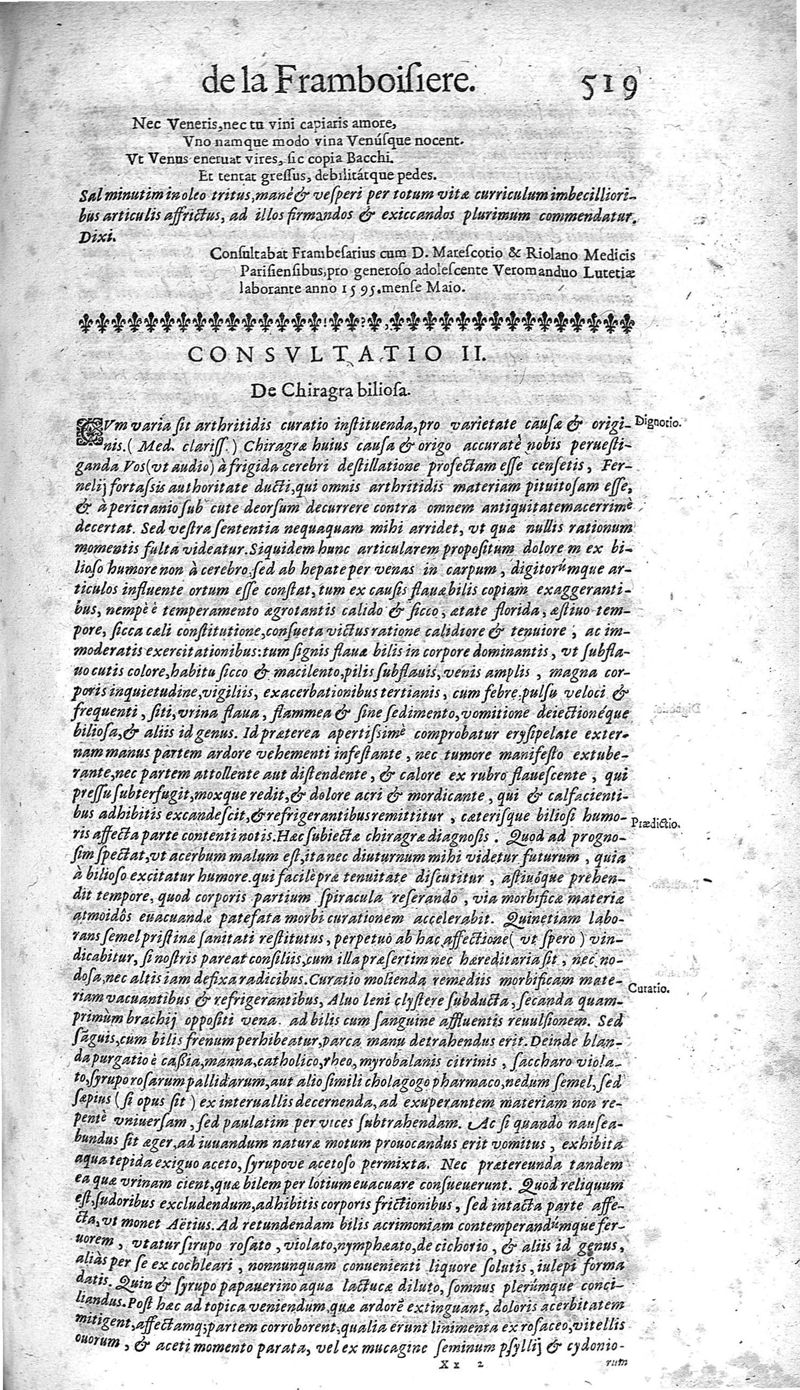 de la Framboisiere. 519
Nec Veneris, nec tu vini capiaris amore,
Vno namque modo vina Venúsque nocent.
Vt Venus eneruat vires, sic copia Bacchi.
Et tentat gressus, debilitátque pedes.
Sal minutim in oleo tritus, manè & vesperi per totum vitæ curriculum imbecilliori-
bus articulis affrictus, ad illos firmandos & exiccandos plurimum commendatur.
Dixi.
Consultabat Frambesarius cum D. Marescotio & Riolano Medicis
Parisiensibus, pro generoso adolescente Veromanduo Lutetiæ
laborante anno 1595. mense Maio.
CONSVLTATIO II.
De Chiragra biliosa.
CVm varia sit arthritidis curatio instituenda, pro varietate causæ & origi- Dignotio.
nis. (Med. clariss.) Chiragræ huius causa & origo accuratè nobis peruesti-
ganda. Vos (vt audio) à frigida cerebri destillatione profectam esse censetis, Fer-
nelij fortassis authoritate ducti, qui omnis arthritidis materiam pituitosam esse,
& à pericranio sub cute deorsum decurrere contra omnem antiquitatem acerrimè
decertat. Sed vestra sententia nequaquam mihi arridet, vt quæ nullis rationum
momentis fulta videatur. Siquidem hunc articularem propositum dolorem ex bi-
lioso humore non à cerebro, sed ab hepate per venas in carpum, digitorúmque ar-
ticulos influente ortum esse constat, tum ex causis flauæ bilis copiam exaggeranti-
bus, nempè è temperamento ægrotantis calido & sicco, ætate florida, æstiuo tem-
pore, sicca cæli constitutione, consueta victus ratione calidiore & tenuiore, ac im-
moderatis exercitationibus: tum signis flauæ bilis in corpore dominantis, vt subfla-
uo cutis colore, habitu sicco & macilento, pilis subflauis, venis amplis, magna cor-
poris inquietudine, vigiliis, exacerbationibus tertianis, cum febre, pulsu veloci &
frequenti, siti, vrina flaua, flammea & sine sedimento, vomitione deiectionéque
biliosa, & aliis id genus. Id præterea apertissimè comprobatur erysipelate exter-
nam manus partem ardore vehementi infestante, nec tumore manifesto extube-
rante, nec partem attollente aut distendente, & calore ex rubro flauescente, qui
pressu subterfugit, moxque redit, & dolore acri & mordicante, qui & calfacienti-
bus adhibitis excandescit, & refrigerantibus remittitur, cæterisque biliosi humo- Prædictio.
ris affecta parte contenti notis. Hæc subiectæ chiragræ diagnosis. Quod ad progno-
sim spectat, vt acerbum malum est, ita nec diuturnum mihi videtur futurum, quia
à bilioso excitatur humore. qui facilè præ tenuitate discutitur, æstiuóque prehen-
dit tempore, quod corporis partium spiracula reserando, via morbificæ materiæ
atmoidôs euacuandæ patefata morbi curationem accelerabit. Quinetiam labo-
rans semel pristinæ sanitati restitutus, perpetuò ab hac affectione (vt spero) vin-
dicabitur, si nostris pareat consiliis, cum illa præsertim nec hæreditaria sit, nec no-
dosa, nec altis iam defixa radicibus. Curatio molienda remediis morbificam mate- Curatio.
riam vacuantibus & refrigerantibus, Aluo leni clystere subducta, secanda quam-
primùm brachij oppositi vena. ad bilis cum sanguine affluentis reuulsionem. Sed
săguis, cum bilis frenum perhibeatur, parca manu detrahendus erit. Deinde blan-
da purgatio è cassia, manna, catholico, rheo, myrobalanis citrinis, saccharo viola-
to, syrupo rosarum pallidarum, aut alio simili cholagogo pharmaco, nedum semel, sed
sæpius (si opus sit) ex interuallis decernenda, ad exuperantem materiam non re-
pentè vniuersam, sed paulatim per vices subtrahendam. Ac si quando nausea-
bundus sit æger, ad iuuandum naturæ motum prouocandus erit vomitus, exhibita
aqua tepida exiguo aceto, syrupove acetoso permixta. Nec prætereunda tandem
ea quæ vrinam cient, quæ bilem per lotium euacuare consueuerunt. Quod reliquum
est, sudoribus excludendum, adhibitis corporis frictionibus, sed intacta parte affe-
cta, vt monet Aëtius. Ad retundendam bilis acrimoniam contemperandúmque fer-
uorem, vtatur sirupo rosato, violato, nymphæato, de cichorio, & aliis id genus,
aliàs per se ex cochleari, nonnunquam conuenienti liquore solutis, iulepi forma
datis. Quin & syrupo papauerino aqua lactucæ diluto, somnus plerúmque conci-
liandus. Post hæc ad topica veniendum, quæ ardorẽ extinguant, doloris acerbitatem
mitigent, affectamq; partem corroborent, qualia erunt linimenta ex rosaceo, vitellis
ouorum, & aceti momento parata, vel ex mucagine seminum psyllij & cydonio-
Xx 2 rum